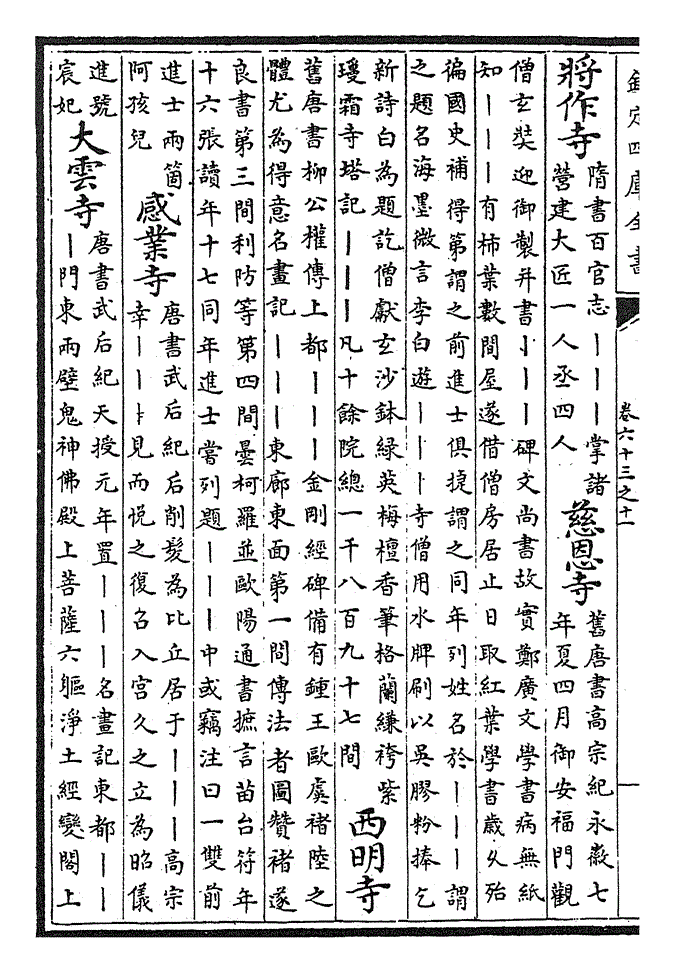 欽定四庫全書
卷六十三之十一
將作寺
隋書百官志｜｜｜掌諸
營建大匠一人丞四人
慈恩寺
舊唐書高宗紀永徽七
年夏四月御安福門觀
僧玄奘迎御製并書｜｜｜碑文尚書故實鄭廣文學書病無紙
知｜｜｜有柿葉數間屋遂借僧房居止日取紅葉學書歲久殆
徧國史補得第謂之前進士俱捷謂之同年列姓名於｜｜｜謂
之題名海墨微言李白遊｜｜｜寺僧用水牌刷以吳膠粉捧乞
新詩白為題訖僧獻玄沙鉢綠英梅檀香筆格蘭縑袴紫
瓊霜寺塔記｜｜｜凡十餘院總一千八百九十七間
西明寺
舊唐書柳公權傳上都｜｜｜金剛經碑備有鍾王歐虞褚陸之
體尤為得意名畫記｜｜｜東廊東面第一間傳法者圖贊褚遂
良書第三間利防等第四間曇柯羅並歐陽通書摭言苗台符年
十六張讀年十七同年進士嘗列題｜｜｜中或竊注曰一雙前
進士兩箇
阿孩兒
感業寺
唐書武后紀后削髮為比丘居于｜｜｜高宗
幸｜｜｜見而悅之復召入宮久之立為昭儀
進號
宸妃
大雲寺
唐書武后紀天授元年置｜｜｜名畫記東都｜｜
｜門東兩壁鬼神佛殿上菩薩六軀淨土經變閣上